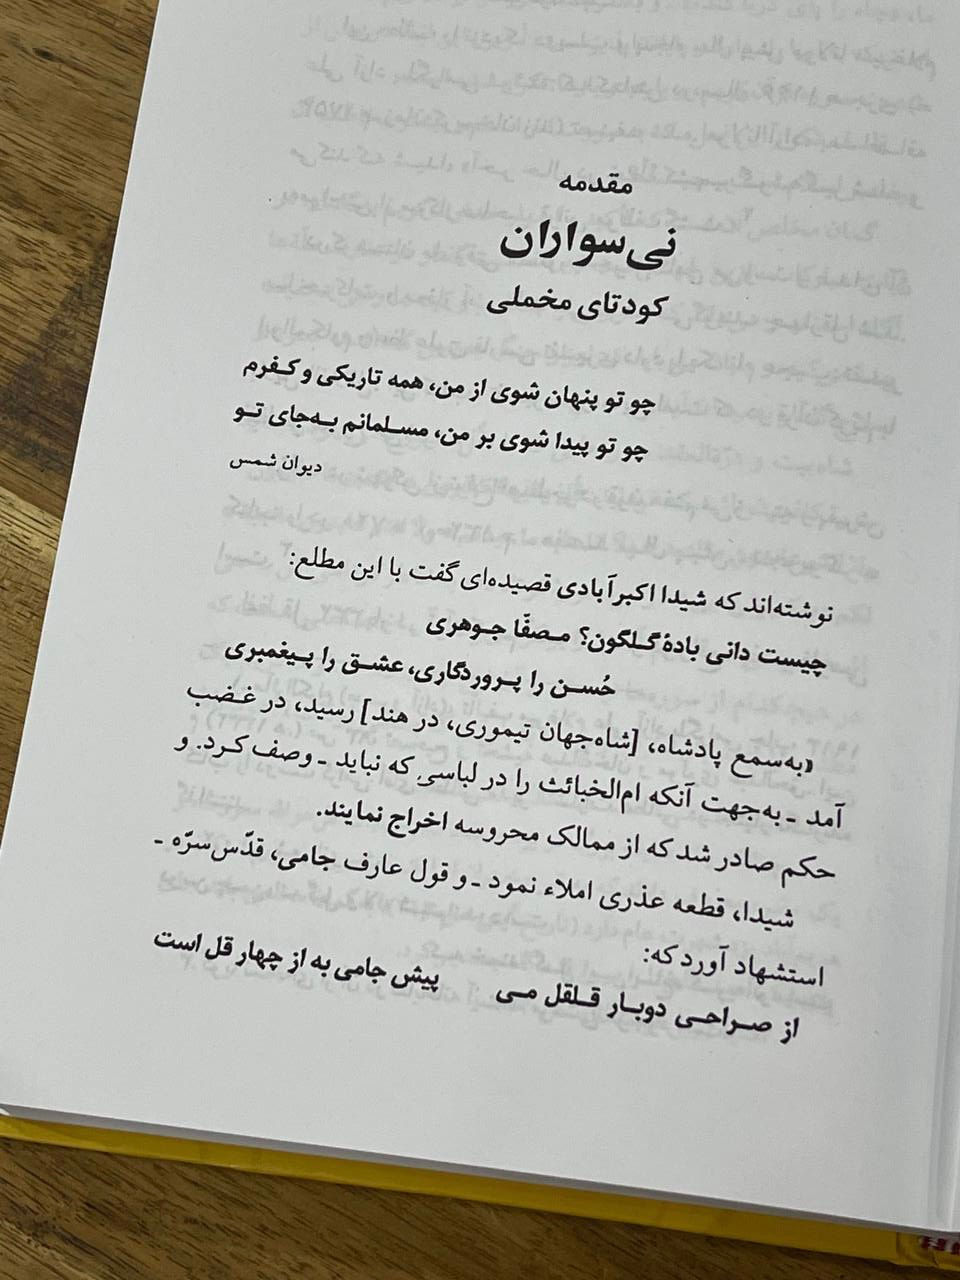 مقدمه
نی‌سواران
کودتای مخملی
چو تو پنهان شوی از من، همه تاریکی و کفرم
چو تو پیدا شوی بر من، مسلمانم به‌جای تو
دیوان شمس
نوشته‌اند که شیدا اکبرآبادی قصیده‌ای گفت با این مطلع:
چیست دانی بادهٔ گلگون؟ مصفّا جوهری
حُسن را پروردگاری، عشق را پیغمبری
«به‌سمع پادشاه، [شاه‌جهان تیموری، در هند] رسید، در غضب
آمد ـ به‌جهت آنکه ام‌الخبائث را در لباسی که نباید ـ وصف کرد. و
حکم صادر شد که از ممالک محروسه اخراج نمایند.
شیدا، قطعه عذری املاء نمود ـ و قول عارف جامی، قدّس‌سرّه ـ
استشهاد آورد که:
از صراحی دوبار قلقل می پیش جامی به از چهار قل است